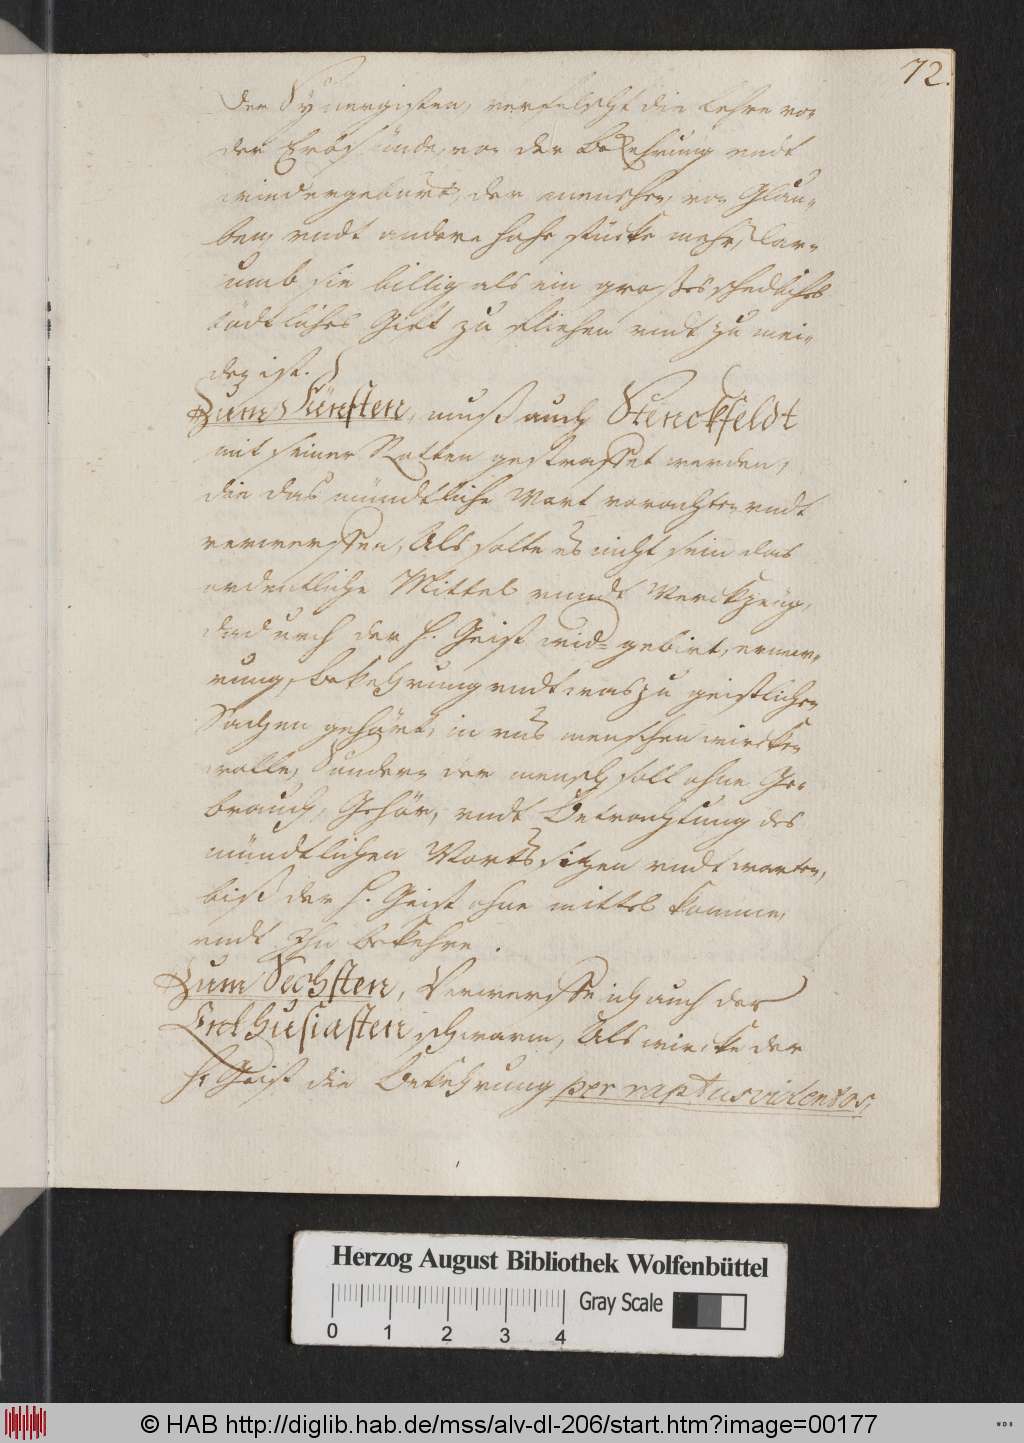 72.
der Synergisten, verfelscht die Lehre von
der Erbsünde, von der Bekehrung undt
wiedergeburt, der menschen, von Glau=
ben, undt andere hohe stücke mehr, dar=
umb sie billig als ein großes schedliches
tödtliches Gift zu fliehen undt zu mei=
den ist.
Zum Fünften, muß auch Stenckfeldt
mit seiner Rotten gestraffet werden,
die das mündtliche Wort verachten undt
verwerffen, Als solte es nicht sein das
ordentliche Mittel unndt Werckzeüg,
dadurch der H. Geist wid= gebirt, ernew=
rung, bekehrung undt was zu geistlichen
Sachen gehört, in uns menschen wircken
wolle, Sondern der mensch soll ohne Ge=
brauch, Gehör, undt Betrachtung des
mündtlichen Worts sitzen undt warten,
biß der H. Geist ohne mittel komme,
undt Ihn bekehre.
Zum Sechsten, Verwerffe ich auch der
Enthusiasten schwarm, Als wircke der
H. Geist die Bekehrung per raptus violentos,
Herzog August Bibliothek Wolfenbüttel
Gray Scale
0 1 2 3 4
© HAB http://diglib.hab.de/mss/alv-dl-206/start.htm?image=00177